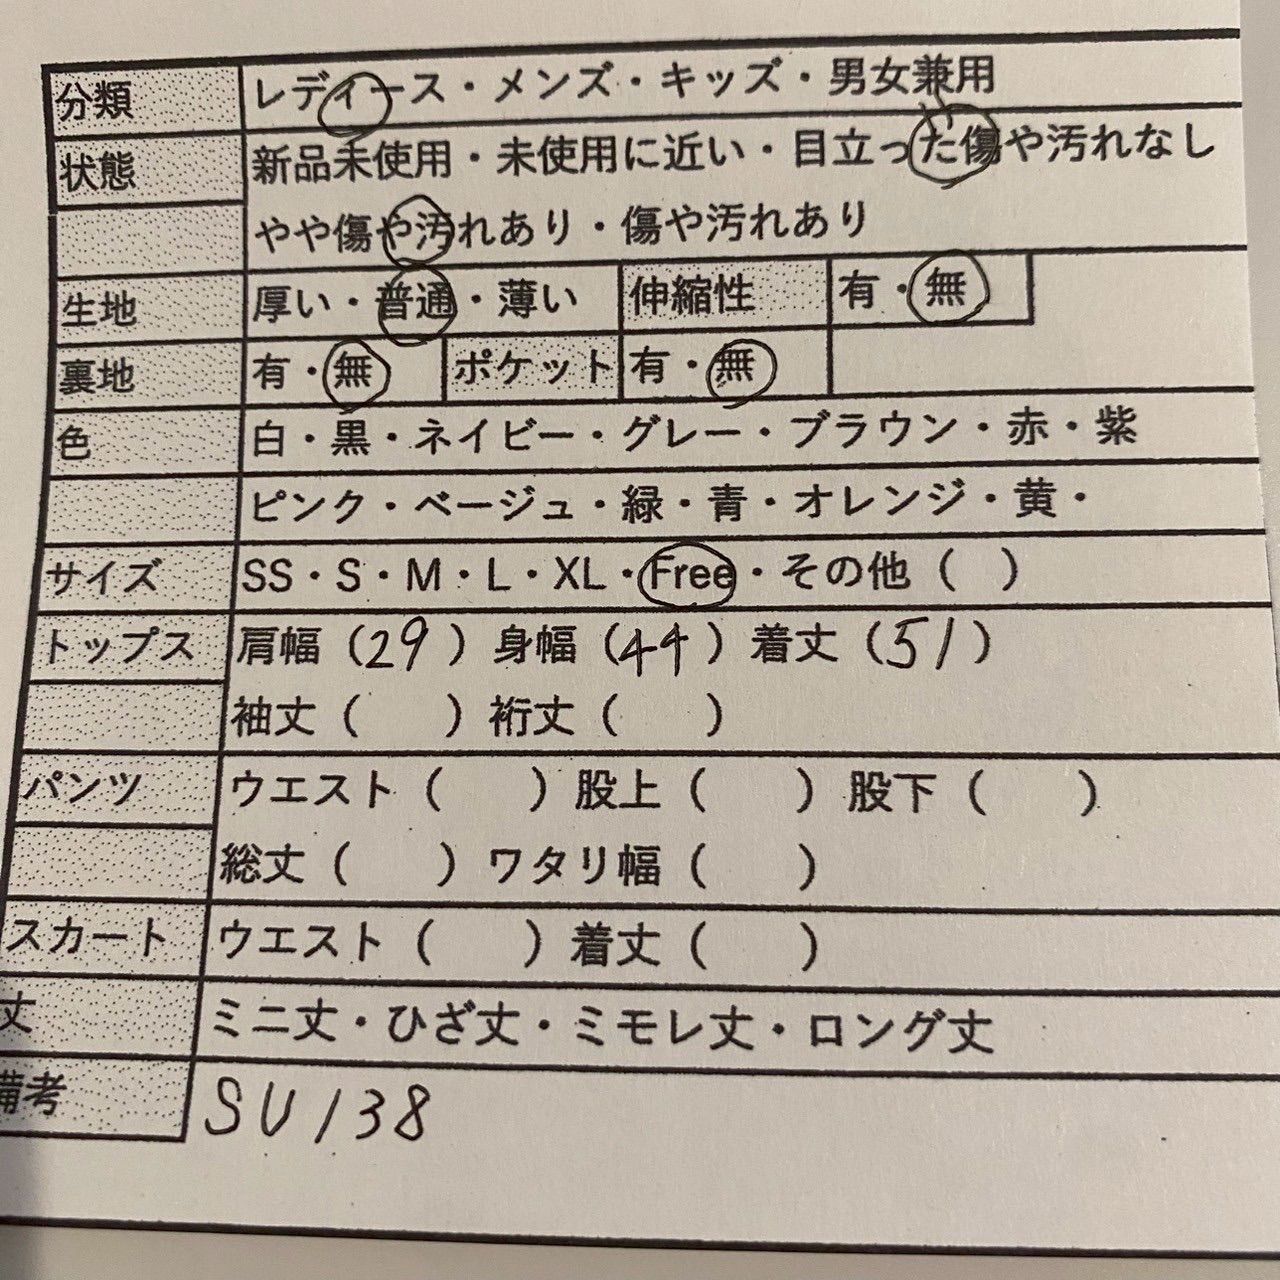 分類 レディース・メンズ・キッズ・男女兼用
状態 新品未使用・未使用に近い・目立った傷や汚れなし
やや傷や汚れあり・傷や汚れあり
生地 厚い・普通・薄い 伸縮性 有・無
裏地 有・無 ポケット 有・無
色 白・黒・ネイビー・グレー・ブラウン・赤・紫
ピンク・ベージュ・緑・青・オレンジ・黄・
サイズ SS・S・M・L・XL・Free・その他（ ）
トップス 肩幅（29）身幅（44）着丈（51）
袖丈（ ）裄丈（ ）
パンツ ウエスト（ ）股上（ ）股下（ ）
総丈（ ）ワタリ幅（ ）
スカート ウエスト（ ）着丈（ ）
丈 ミニ丈・ひざ丈・ミモレ丈・ロング丈
備考 SU138